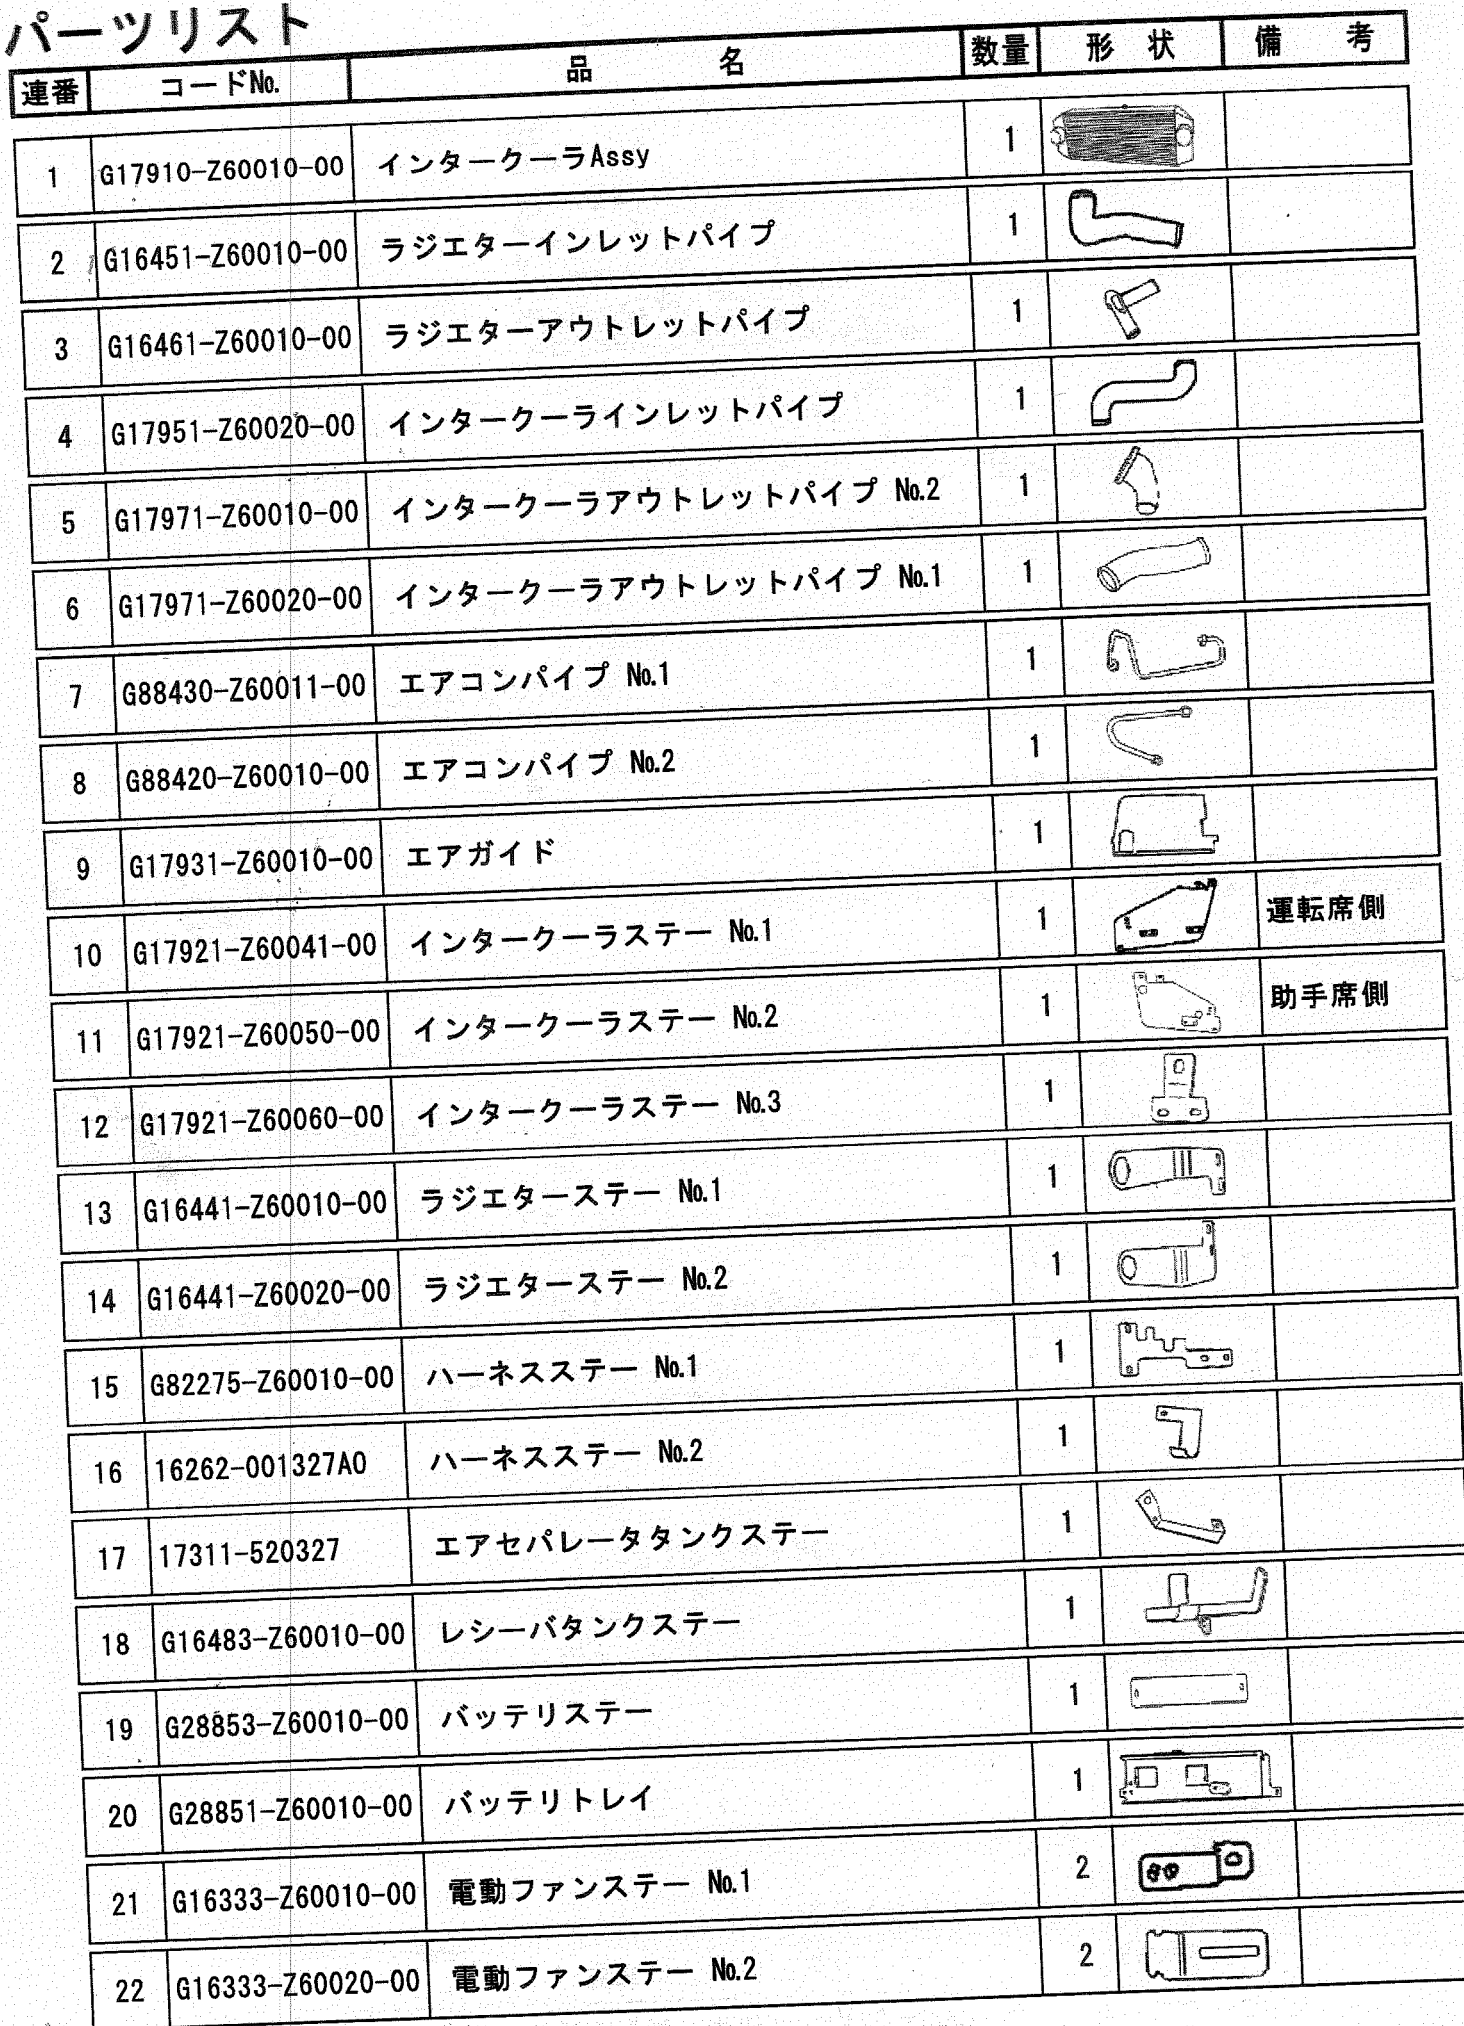 パーツリスト
連番 コードNo. 品名 数量 形状 備考
1 G17910-Z60010-00 インタークーラAssy 1
2 G16451-Z60010-00 ラジエターインレットパイプ 1
3 G16461-Z60010-00 ラジエターアウトレットパイプ 1
4 G17951-Z60020-00 インタークーラインレットパイプ 1
5 G17971-Z60010-00 インタークーラアウトレットパイプ No.2 1
6 G17971-Z60020-00 インタークーラアウトレットパイプ No.1 1
7 G88430-Z60011-00 エアコンパイプ No.1 1
8 G88420-Z60010-00 エアコンパイプ No.2 1
9 G17931-Z60010-00 エアガイド 1
10 G17921-Z60041-00 インタークーラステー No.1 1 運転席側
11 G17921-Z60050-00 インタークーラステー No.2 1 助手席側
12 G17921-Z60060-00 インタークーラステー No.3 1
13 G16441-Z60010-00 ラジエターステー No.1 1
14 G16441-Z60020-00 ラジエターステー No.2 1
15 G82275-Z60010-00 ハーネスステー No.1 1
16 16262-001327A0 ハーネスステー No.2 1
17 17311-520327 エアセパレータタンクステー 1
18 G16483-Z60010-00 レシーバタンクステー 1
19 G28853-Z60010-00 バッテリステー 1
20 G28851-Z60010-00 バッテリトレイ 1
21 G16333-Z60010-00 電動ファンステー No.1 2
22 G16333-Z60020-00 電動ファンステー No.2 2